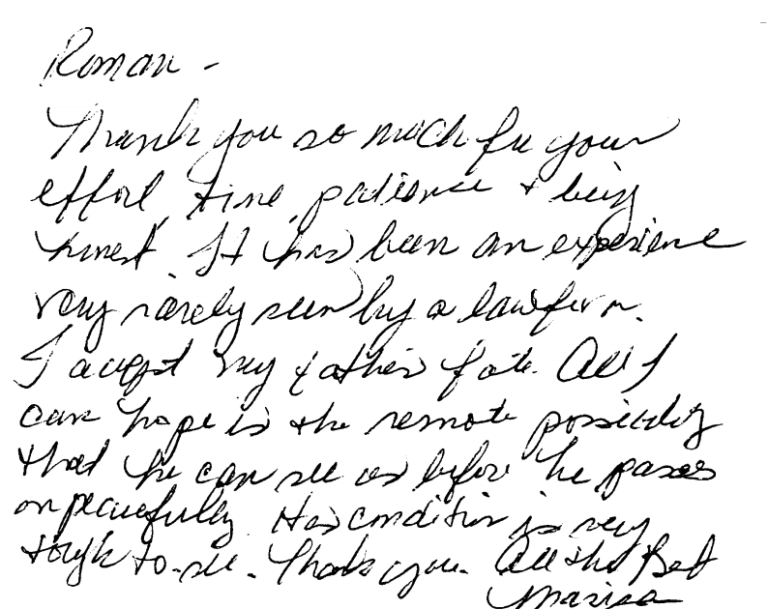 Roman -
Thank you so much for your
effort, time, patience & being
honest. It has been an experience
very rarely seen by a law firm.
I accept my father's fate. All I
can hope is the remote possibility
that he can see us before he passes
on peacefully. His condition is very
tough to see. Thank you. All the Best
Marisa